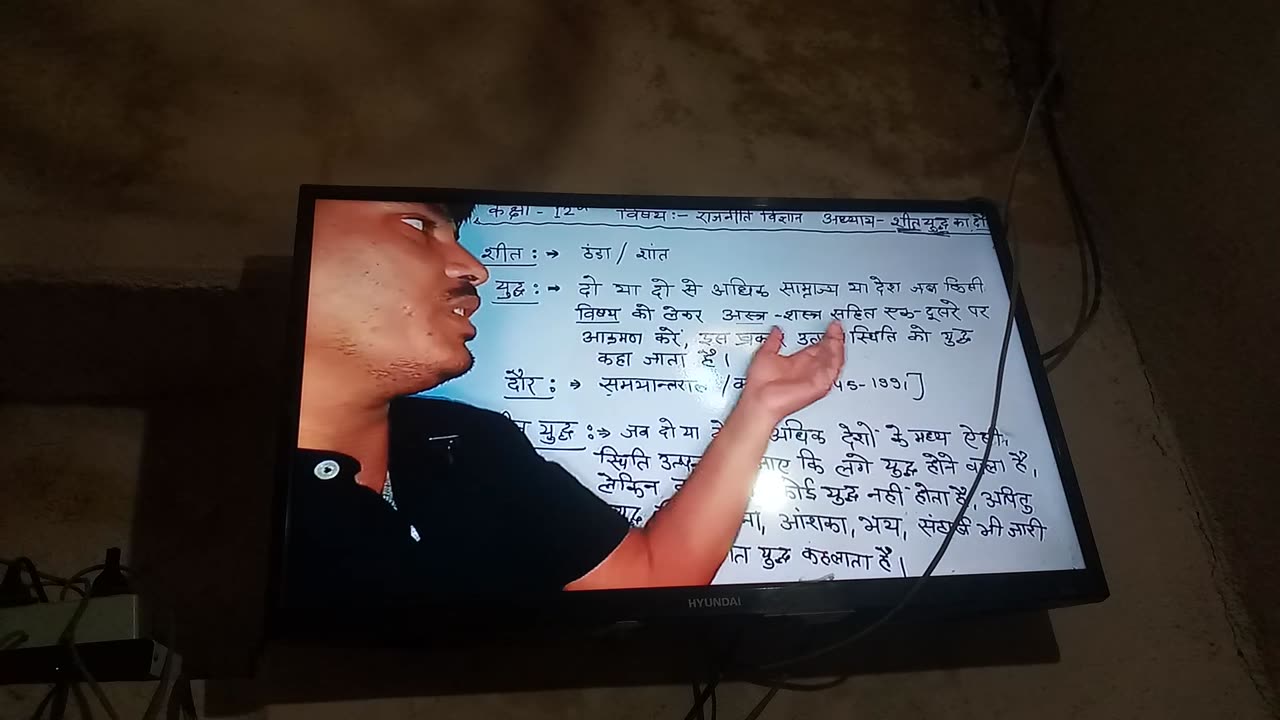 कक्षा - 12th विषय:- राजनीति विज्ञान अध्याय- शीतयुद्ध का दौ
शीत :→ ठंडा / शांत
युद्ध :→ दो या दो से अधिक साम्राज्य या देश जब किसी
विषय को लेकर अस्त्र-शस्त्र सहित एक-दूसरे पर
आक्रमण करें, इस स्थिति को युद्ध
कहा जाता है।
दौर :→ -1991]
युद्ध :→ जब दो या अधिक देशों के मध्य ऐसी
स्थिति कि लगे युद्ध होने वाला है,
लेकिन कोई युद्ध नहीं होता है, अपितु
आंशका, भय, संघर्ष भी जारी
युद्ध कहलाता है।
HYUNDAI